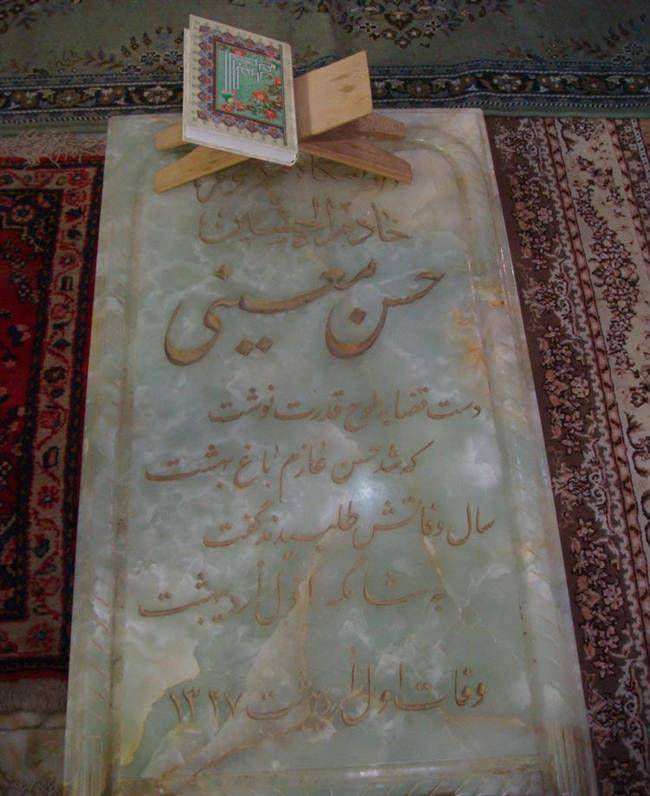 خادم الحسین
حسن معینی
دست قضا به لوح قدرت نوشت
که شد حسن عازم باغ بهشت
سال وفاتش طلبیدند گفت
اول اردیبهشت
وفات اول اردیبهشت ۱۳۲۷